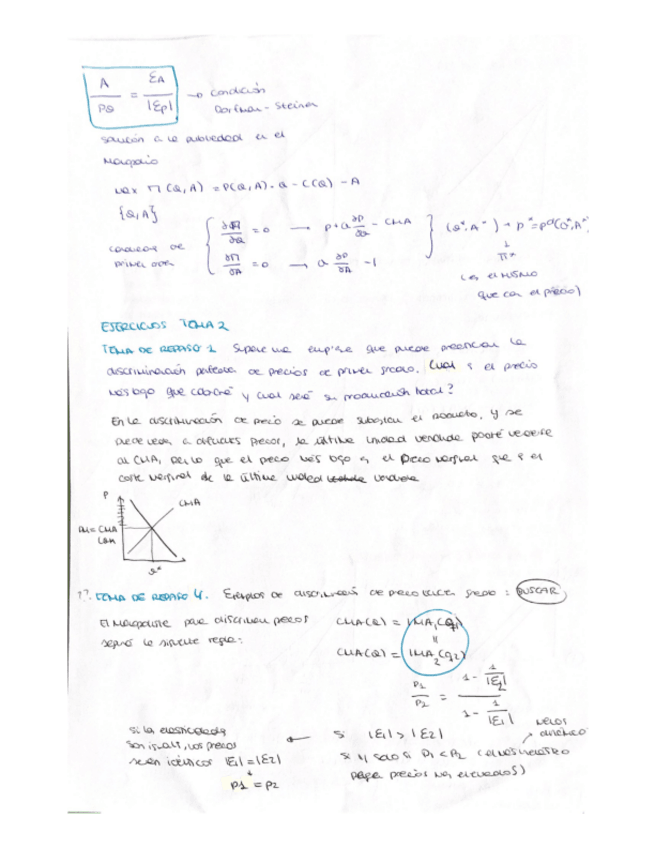 A / PQ = εA / |εp| → condición Dorfman-Steiner
solución a la publicidad en el
Monopolio
Max Π(Q,A) = P(Q,A)·Q - C(Q) - A
{Q,A}
condición de primer orden
∂Π/∂Q = 0 → P+Q ∂P/∂Q - CMA
∂Π/∂A = 0 → Q ∂P/∂A - 1
(Q*,A*) → P*=Pd(Q*,A*)
↓
Π*
(es el mismo
que con el precio)
EJERCICIOS TEMA 2
TEMA DE REPASO 1. Supone una empresa que puede practicar la
discriminación perfecta de precios de primer grado. Cual es el precio
más bajo que cobrará y cual será su producción total?
En la discriminación de precio se puede subastar el producto, y se
puede vender a diferentes precios, la última unidad vendida podrá venderse
al CMA, por lo que el precio más bajo es el precio marginal que es el
coste marginal de la última unidad vendida
P
CMA
PM = CMA
Q*
??. TEMA DE REPASO 4. Ejemplos de discriminación de precio tercer grado : BUSCAR
El Monopolista para discriminar precios
según la siguiente regla:
CMA(Q) = IMA1(q1)
=
CMA(Q) = IMA2(q2)
P1/P2 = (1 - 1/|ε2|) / (1 - 1/|ε1|)
si las elasticidades
son iguales, los precios
serán idénticos |ε1| = |ε2|
↓
P1 = P2
← si |ε1| > |ε2|
si y solo si P1 < P2 (el más inelástico
paga precios más elevados)